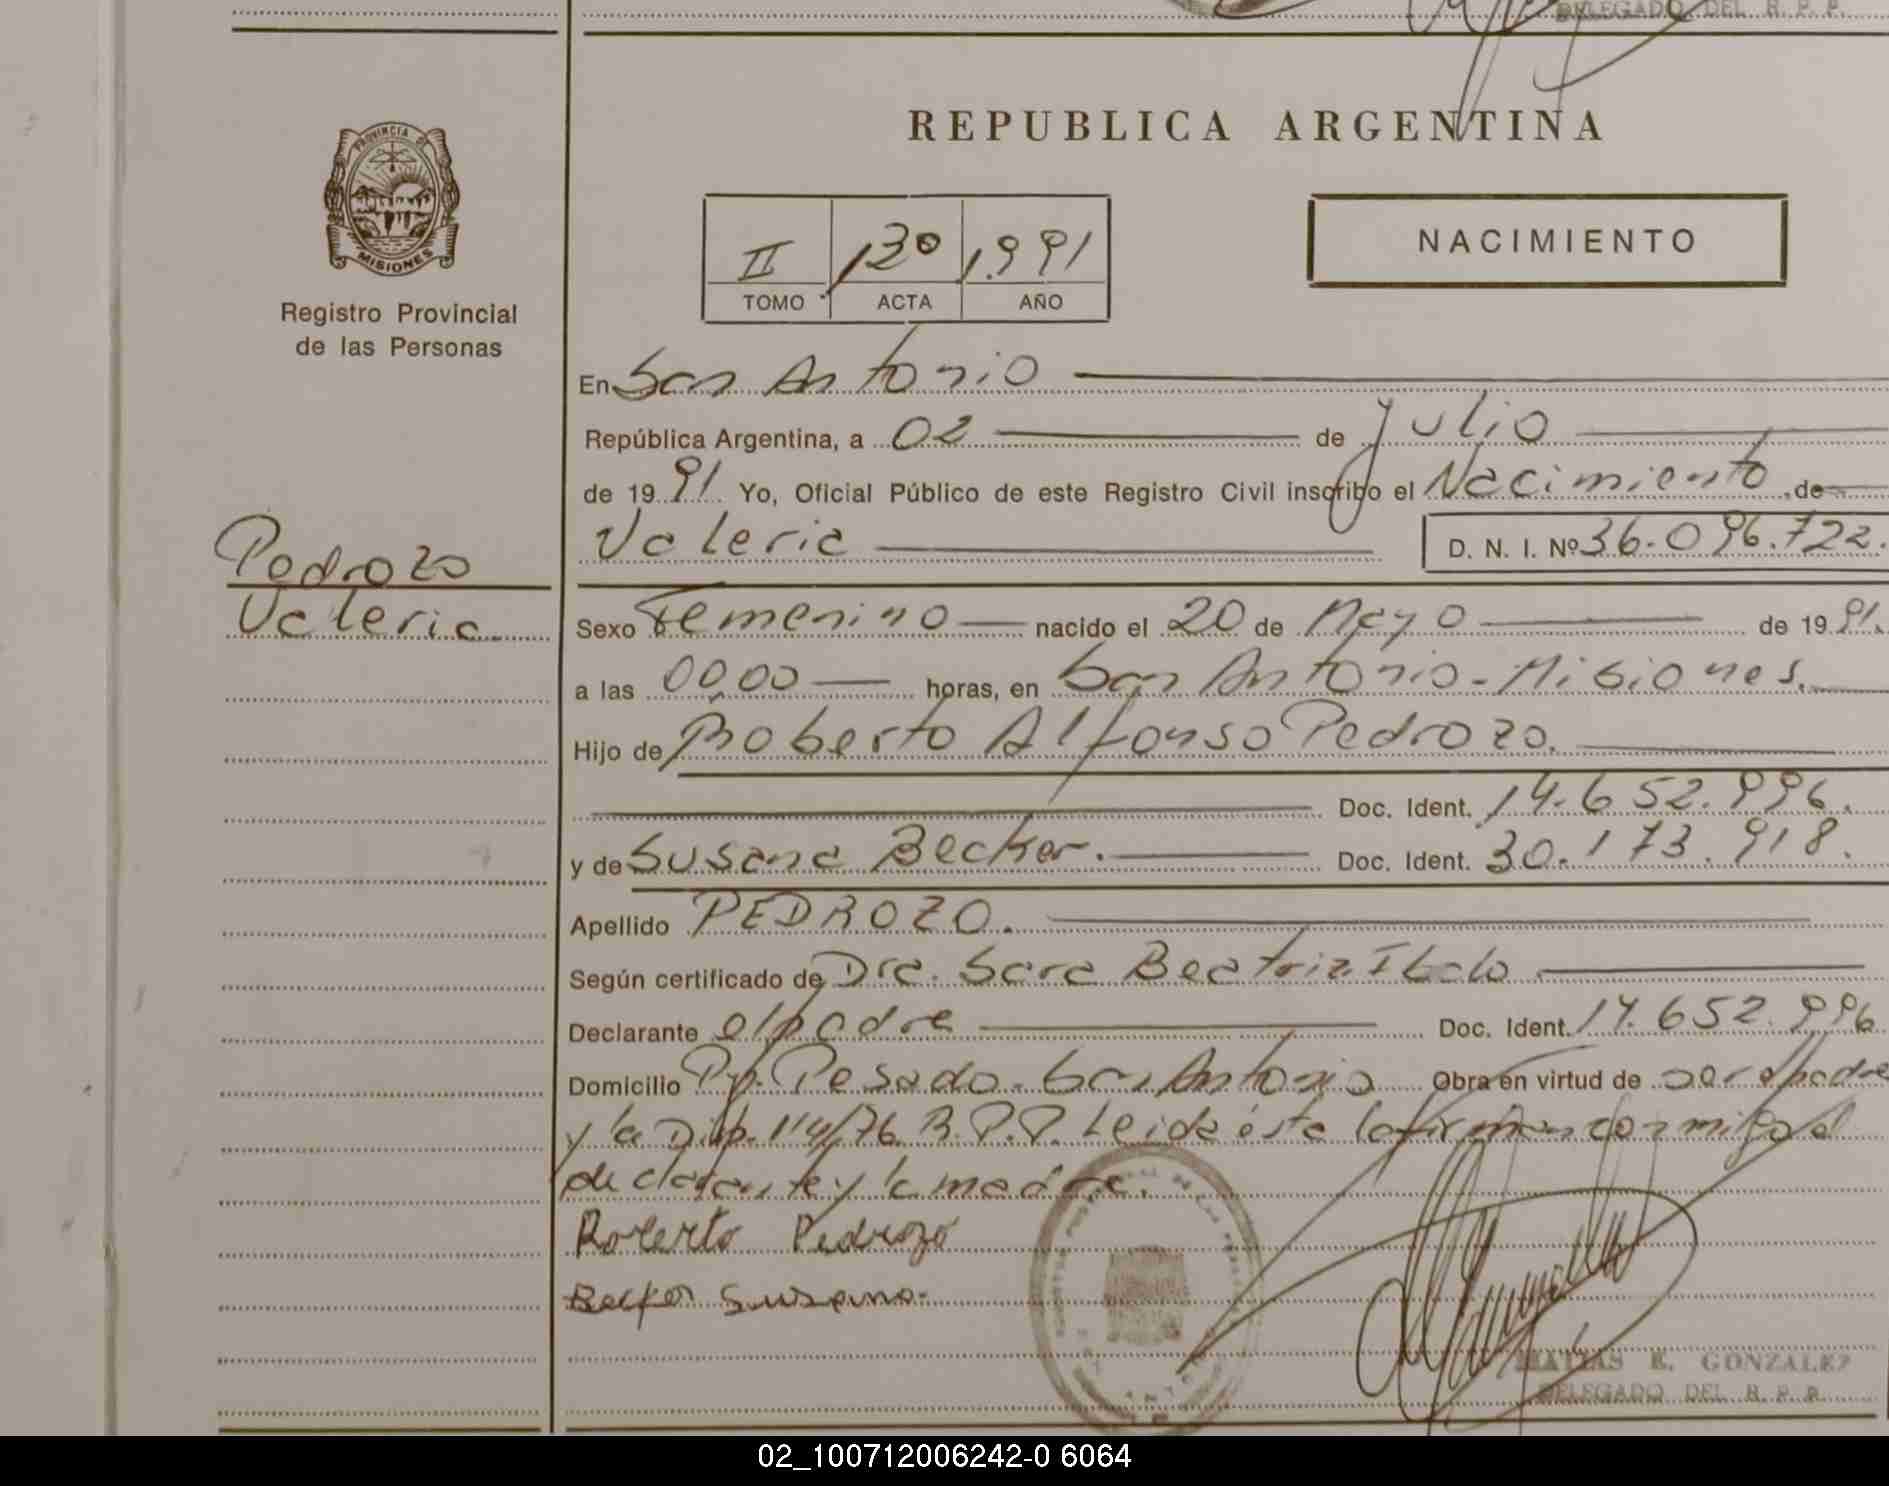 DELEGADO DEL R. P. P.
REPUBLICA ARGENTINA
PROVINCIA DE
MISIONES
Registro Provincial
de las Personas
II 130 1.991
TOMO ACTA AÑO
NACIMIENTO
En San Antonio
República Argentina, a 02 de Julio
de 1991 Yo, Oficial Público de este Registro Civil inscribo el Nacimiento de
Valeria D. N. I. Nº 36.096.722.
Pedrozo
Valeria
Sexo Femenino nacido el 20 de Mayo de 1991.
a las 00,00 horas, en San Antonio - Misiones.
Hijo de Roberto Alfonso Pedrozo.
Doc. Ident. 14.652.996.
y de Susana Becker. Doc. Ident. 30.173.918.
Apellido PEDROZO.
Según certificado de Dra. Sara Beatriz
Declarante el padre Doc. Ident. 14.652.996
Domicilio Pje. Pesado - San Antonio Obra en virtud de ser el padre
y la Disp. 114/76 R.P.P. Leida ésta la firman conmigo el
declarante y la madre.
Roberto Pedrozo
Becker Susana.
MATIAS E. GONZALEZ
DELEGADO DEL R. P. P.
02_100712006242-0 6064